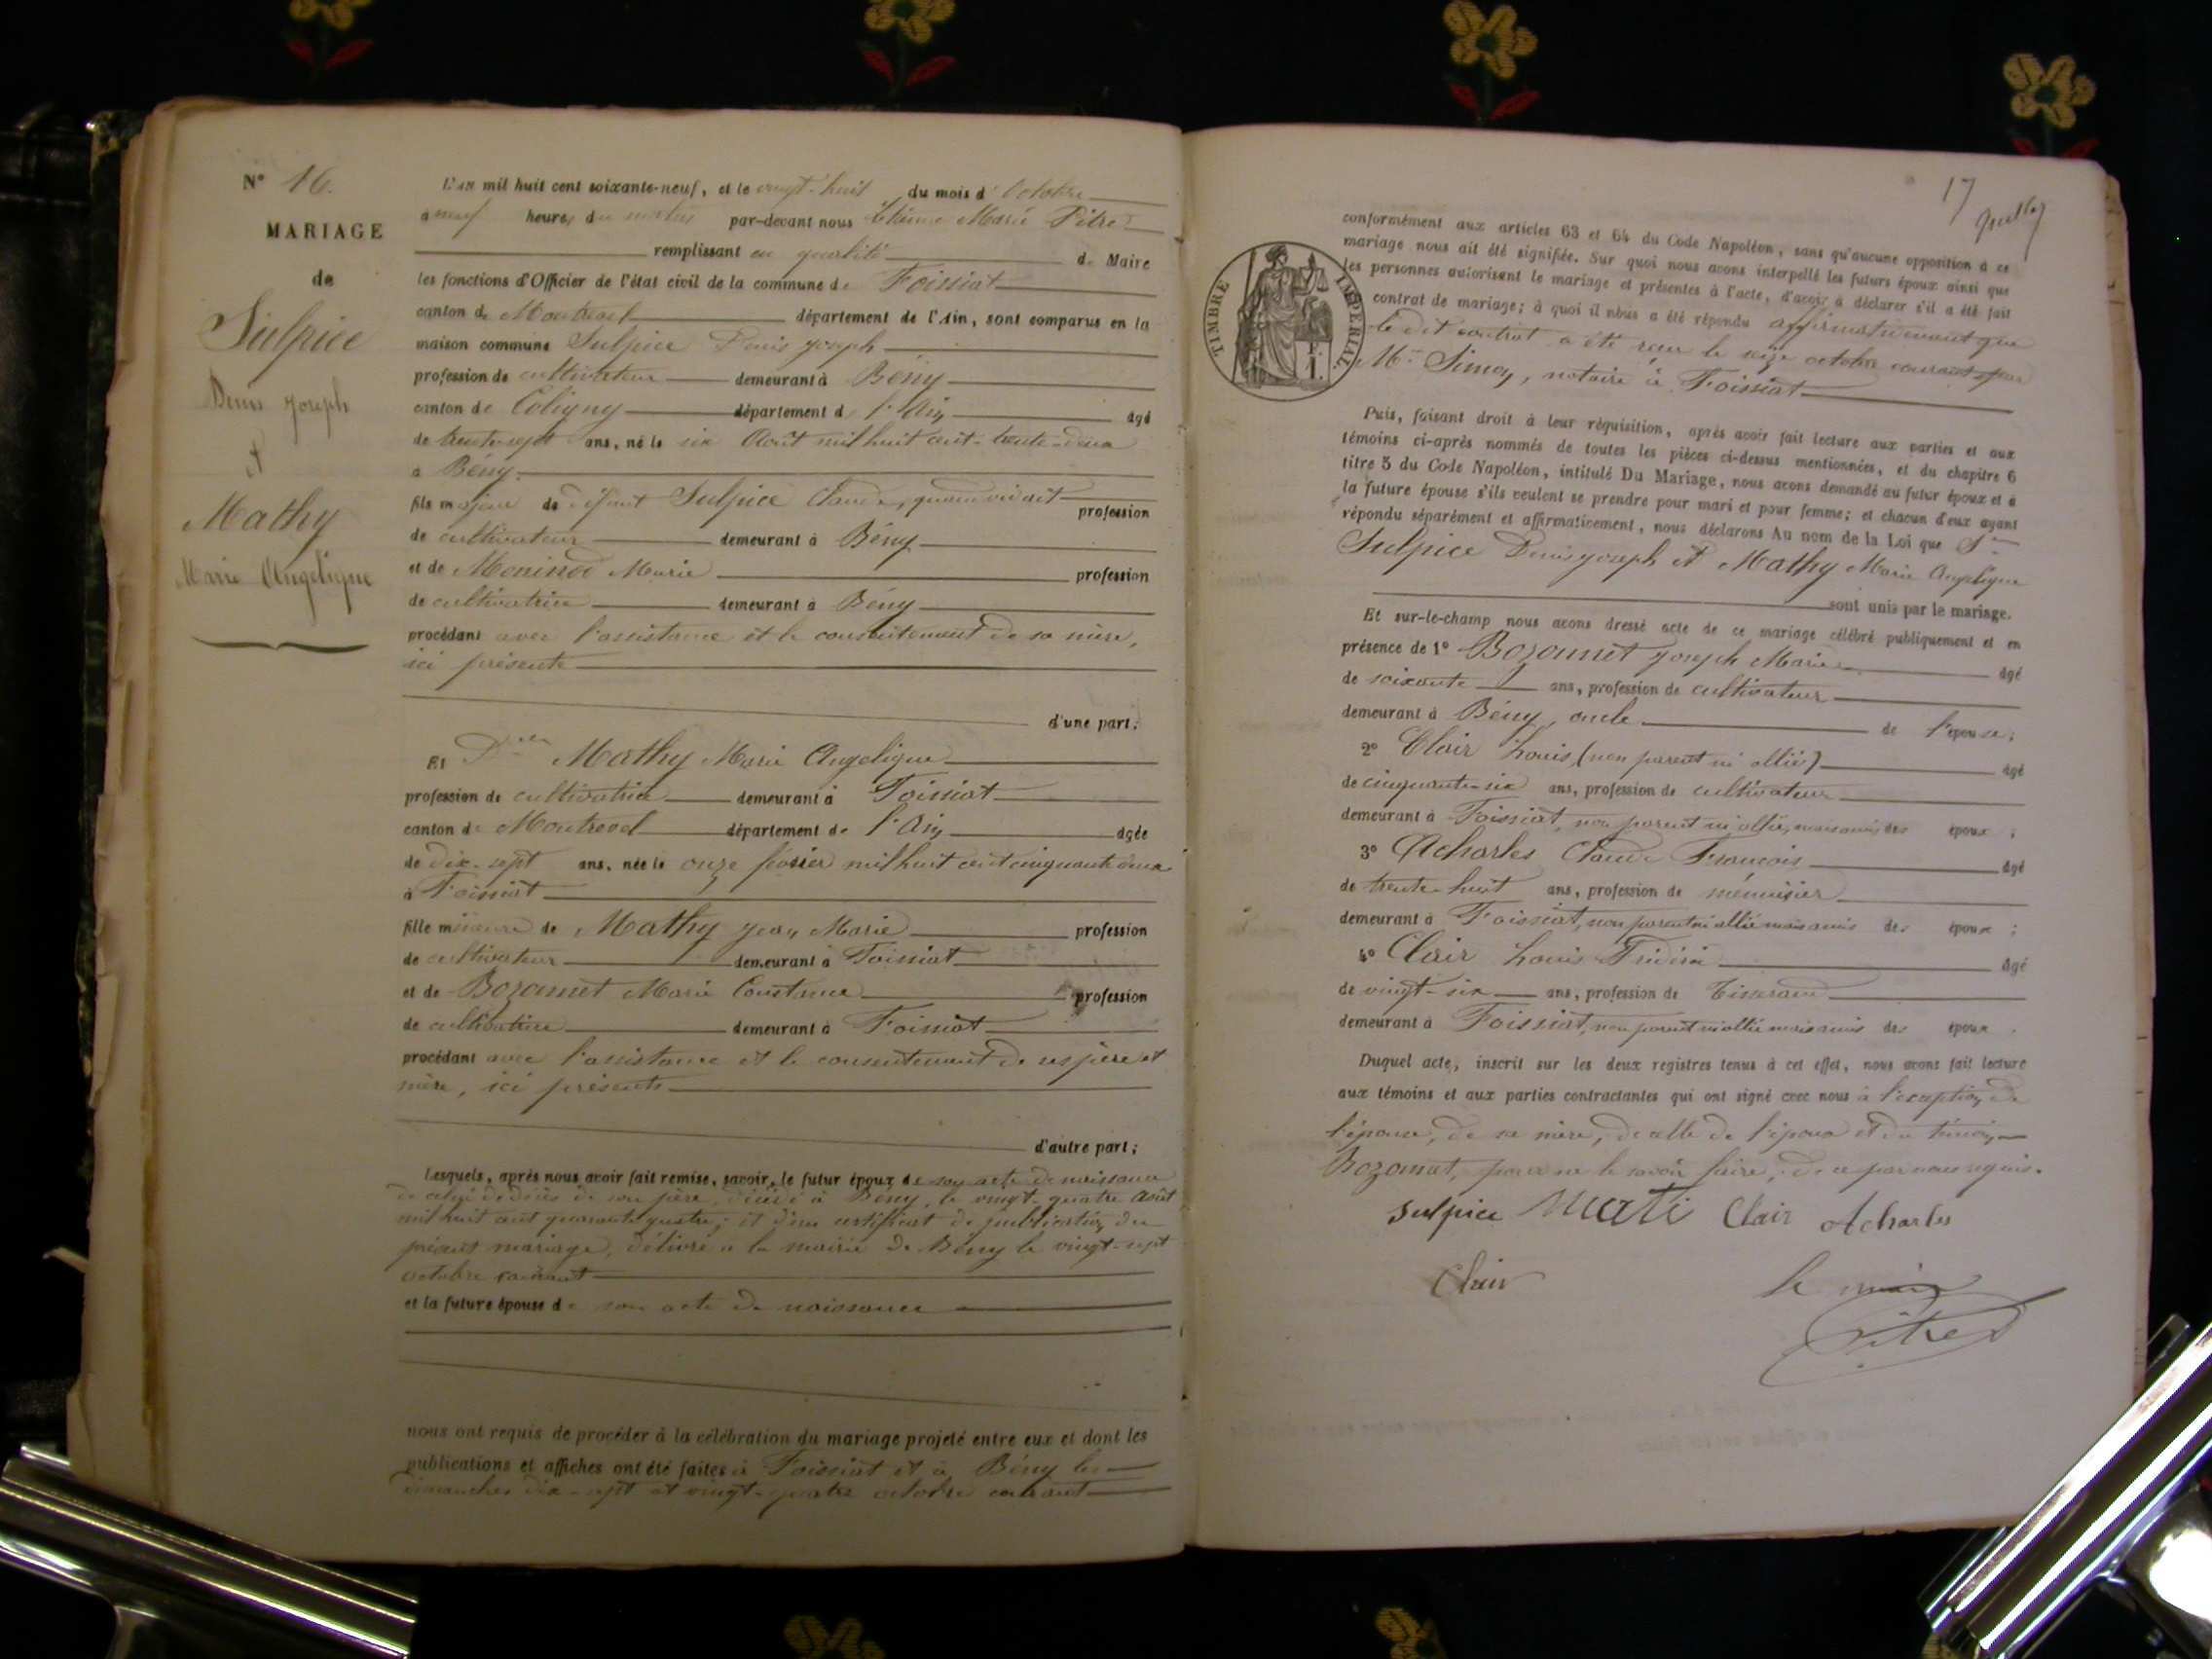 N° 16.
MARIAGE
de
Sulpice
Denis Joseph
et
Mathy
Marie Angélique
L'an mil huit cent soixante-neuf, et le vingt-huit du mois d'Octobre
à neuf heures du matin par-devant nous Etienne Marie Pitre
remplissant en qualité de Maire
les fonctions d'Officier de l'état civil de la commune de Foissiat
canton de Montrevel département de l'Ain, sont comparus en la
maison commune Sulpice Denis Joseph
profession de cultivateur demeurant à Bény
canton de Coligny département de l'Ain âgé
de trente-sept ans, né le six Août mil huit cent trente-deux
à Bény
fils majeur de défunt Sulpice Claude, quand vivait profession
de cultivateur demeurant à Bény
et de Marie profession
de cultivatrice demeurant à Bény
procédant avec l'assistance et le consentement de sa mère,
ici présente
d'une part.
Et Dlle Mathy Marie Angélique
profession de cultivatrice demeurant à Foissiat
canton de Montrevel département de l'Ain âgée
de dix-sept ans, née le onze février mil huit cent cinquante deux
à Foissiat
fille mineure de Mathy Jean Marie profession
de cultivateur demeurant à Foissiat
et de Bozonnet Marie Constance profession
de cultivatrice demeurant à Foissiat
procédant avec l'assistance et le consentement de ses père et
mère, ici présents
d'autre part;
Lesquels, après nous avoir fait remise, savoir, le futur époux de son acte de naissance
de celui de décès de son père, décédé à Bény, le vingt-quatre août
mil huit cent quarante quatre; et d'un certificat de publication du
présent mariage, délivré à la mairie de Bény le vingt-sept
octobre courant
et la future épouse de son acte de naissance
nous ont requis de procéder à la célébration du mariage projeté entre eux et dont les
publications et affiches ont été faites à Foissiat et à Bény les
dimanches dix-sept et vingt-quatre octobre courant
17
TIMBRE IMPERIAL
1 F.
conformément aux articles 63 et 64 du Code Napoléon, sans qu'aucune opposition à ce
mariage nous ait été signifiée. Sur quoi nous avons interpellé les futurs époux ainsi que
les personnes autorisant le mariage et présentes à l'acte, d'avoir à déclarer s'il a été fait
contrat de mariage; à quoi il nous a été répondu affirmativement que
le dit contrat a été reçu le seize octobre courant par
Me Simoy, notaire à Foissiat
Puis, faisant droit à leur réquisition, après avoir fait lecture aux parties et aux
témoins ci-après nommés de toutes les pièces ci-dessus mentionnées, et du chapitre 6
titre 5 du Code Napoléon, intitulé Du Mariage, nous avons demandé au futur époux et à
la future épouse s'ils veulent se prendre pour mari et pour femme; et chacun d'eux ayant
répondu séparément et affirmativement, nous déclarons Au nom de la Loi que Sr
Sulpice Denis Joseph et Mathy Marie Angélique
sont unis par le mariage.
Et sur-le-champ nous avons dressé acte de ce mariage célébré publiquement et en
présence de 1° Bozonnet Joseph Marie âgé
de soixante ans, profession de cultivateur
demeurant à Bény, oncle de l'épouse;
2° Clair Louis, (non parent ni allié) âgé
de cinquante-six ans, profession de cultivateur
demeurant à Foissiat, non parent ni allié, mais ami des époux;
3° Acharles Claude François âgé
de trente-huit ans, profession de ménuisier
demeurant à Foissiat, non parent ni allié mais amis des époux;
4° Clair Louis âgé
de vingt-six ans, profession de Tisserand
demeurant à Foissiat, non parent ni allié mais amis des époux.
Duquel acte, inscrit sur les deux registres tenus à cet effet, nous avons fait lecture
aux témoins et aux parties contractantes qui ont signé avec nous à l'exception de
l'épouse, de sa mère, de celle de l'époux et du témoin
Bozonnet, pour ne le savoir faire, de ce par nous requis.
Sulpice Mati Clair Acharles
Clair le maire
Pitre